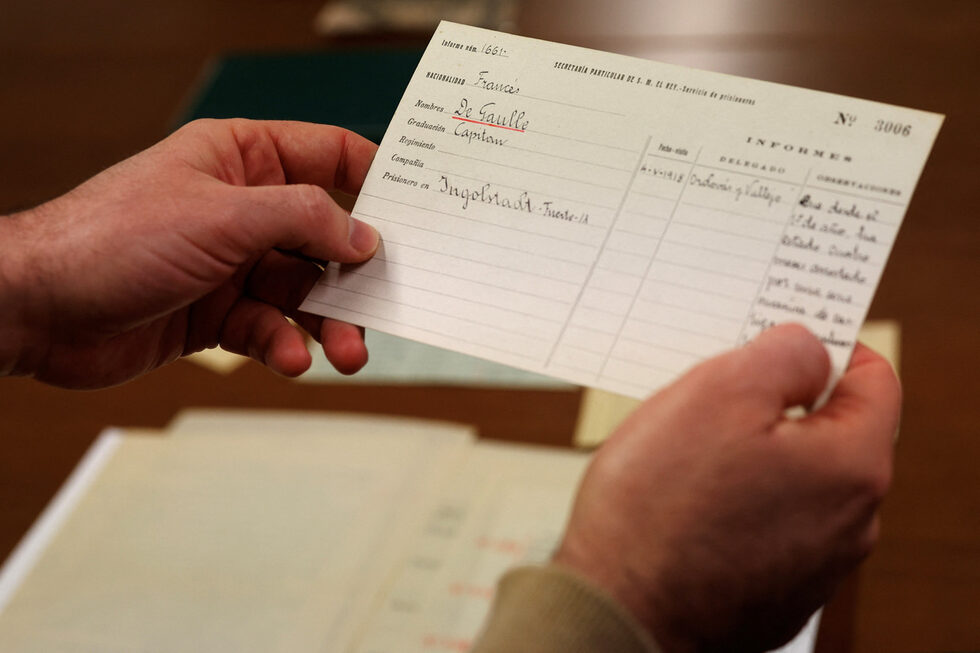 Informe núm. 1661-
SECRETARÍA PARTICULAR DE S. M. EL REY.-Servicio de prisioneros
Nº 3006
NACIONALIDAD Francés
Nombres De Gaulle
Graduación Capitan
Regimiento
Compañía
Prisionero en Ingolstadt-Fuerte-IA
INFORMES
Fecha-visita
DELEGADO
OBSERVACIONES
4-V-1918
y Vallejo
Que desde el
1º de año, ha
estado cuatro
meses arrestado
por una
de